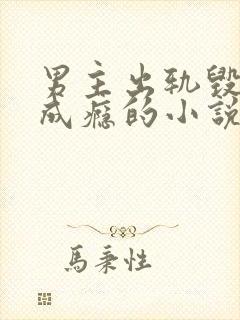 男主出轨毁
成瘾的小說
馬秉性